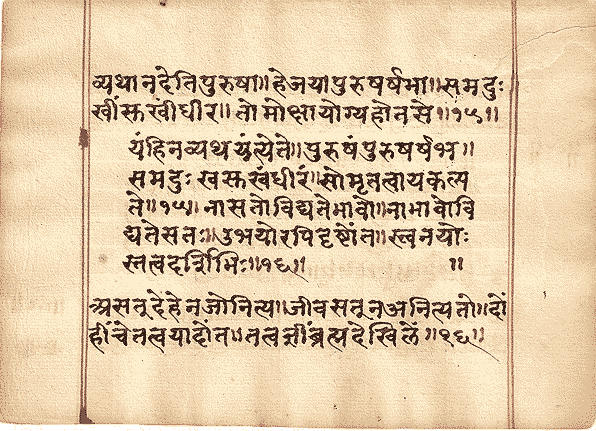 व्यथा न देति पुरुषा॥हे जया पुरुषर्षभा॥समदुः
खीस्तखीधीर॥तो मोक्षा योग्य होतसे॥१५॥
यंहिनव्यथयंत्येते॥पुरुषंपुरुषर्षभ॥
समदुः खस्तखंधीरं॥सोमृतत्वायकल्प
ते॥१५॥नासतोविद्यतेभावो॥नाभावोवि
द्यतेसतः॥उभयोरपिदृष्टोंत॥स्त्वनयोः
स्तत्वदर्शिभिः॥१६॥ ॥
असत् देहे न जो नित्या॥जीव सत् न अनित्य तो॥दों
हींचेतत्वयादोंत॥तत्वज्ञींब्रह्मदेखिलें॥१६॥